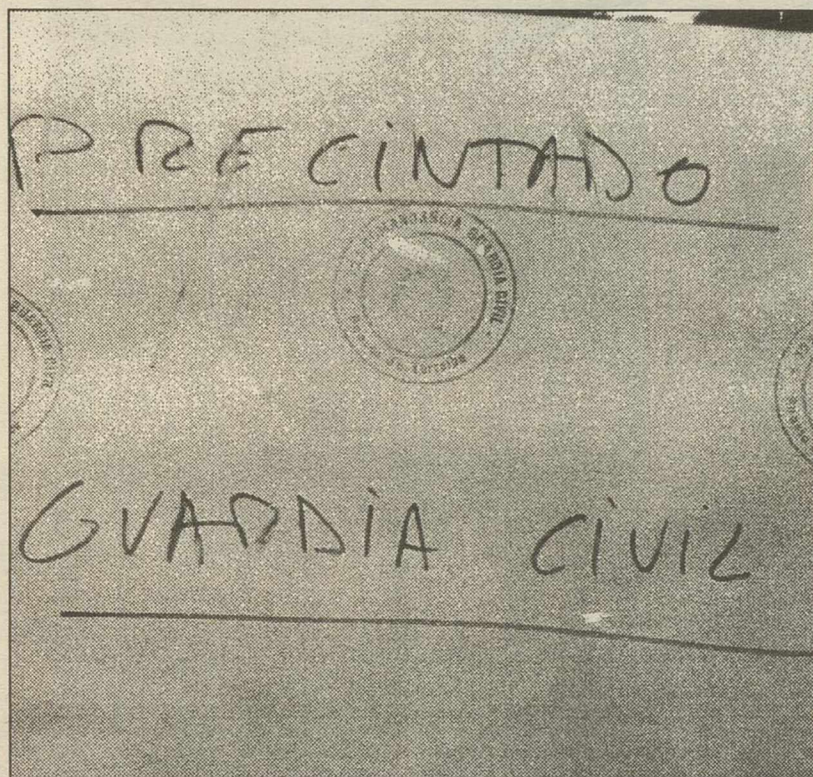 PRECINTADO
COMANDANCIA GUARDIA CIVIL
GUARDIA CIVIL